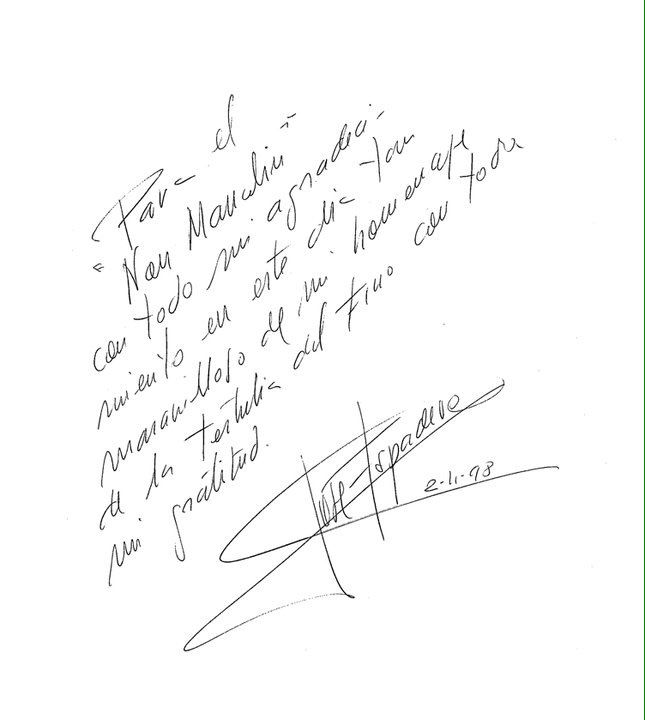 Para el
"Nou Manolin"
con todo mi agradeci-
miento en este dia tan
maravilloso de mi homenaje
de la Tertulia del Fino con toda
mi gratitud.
2-11-98